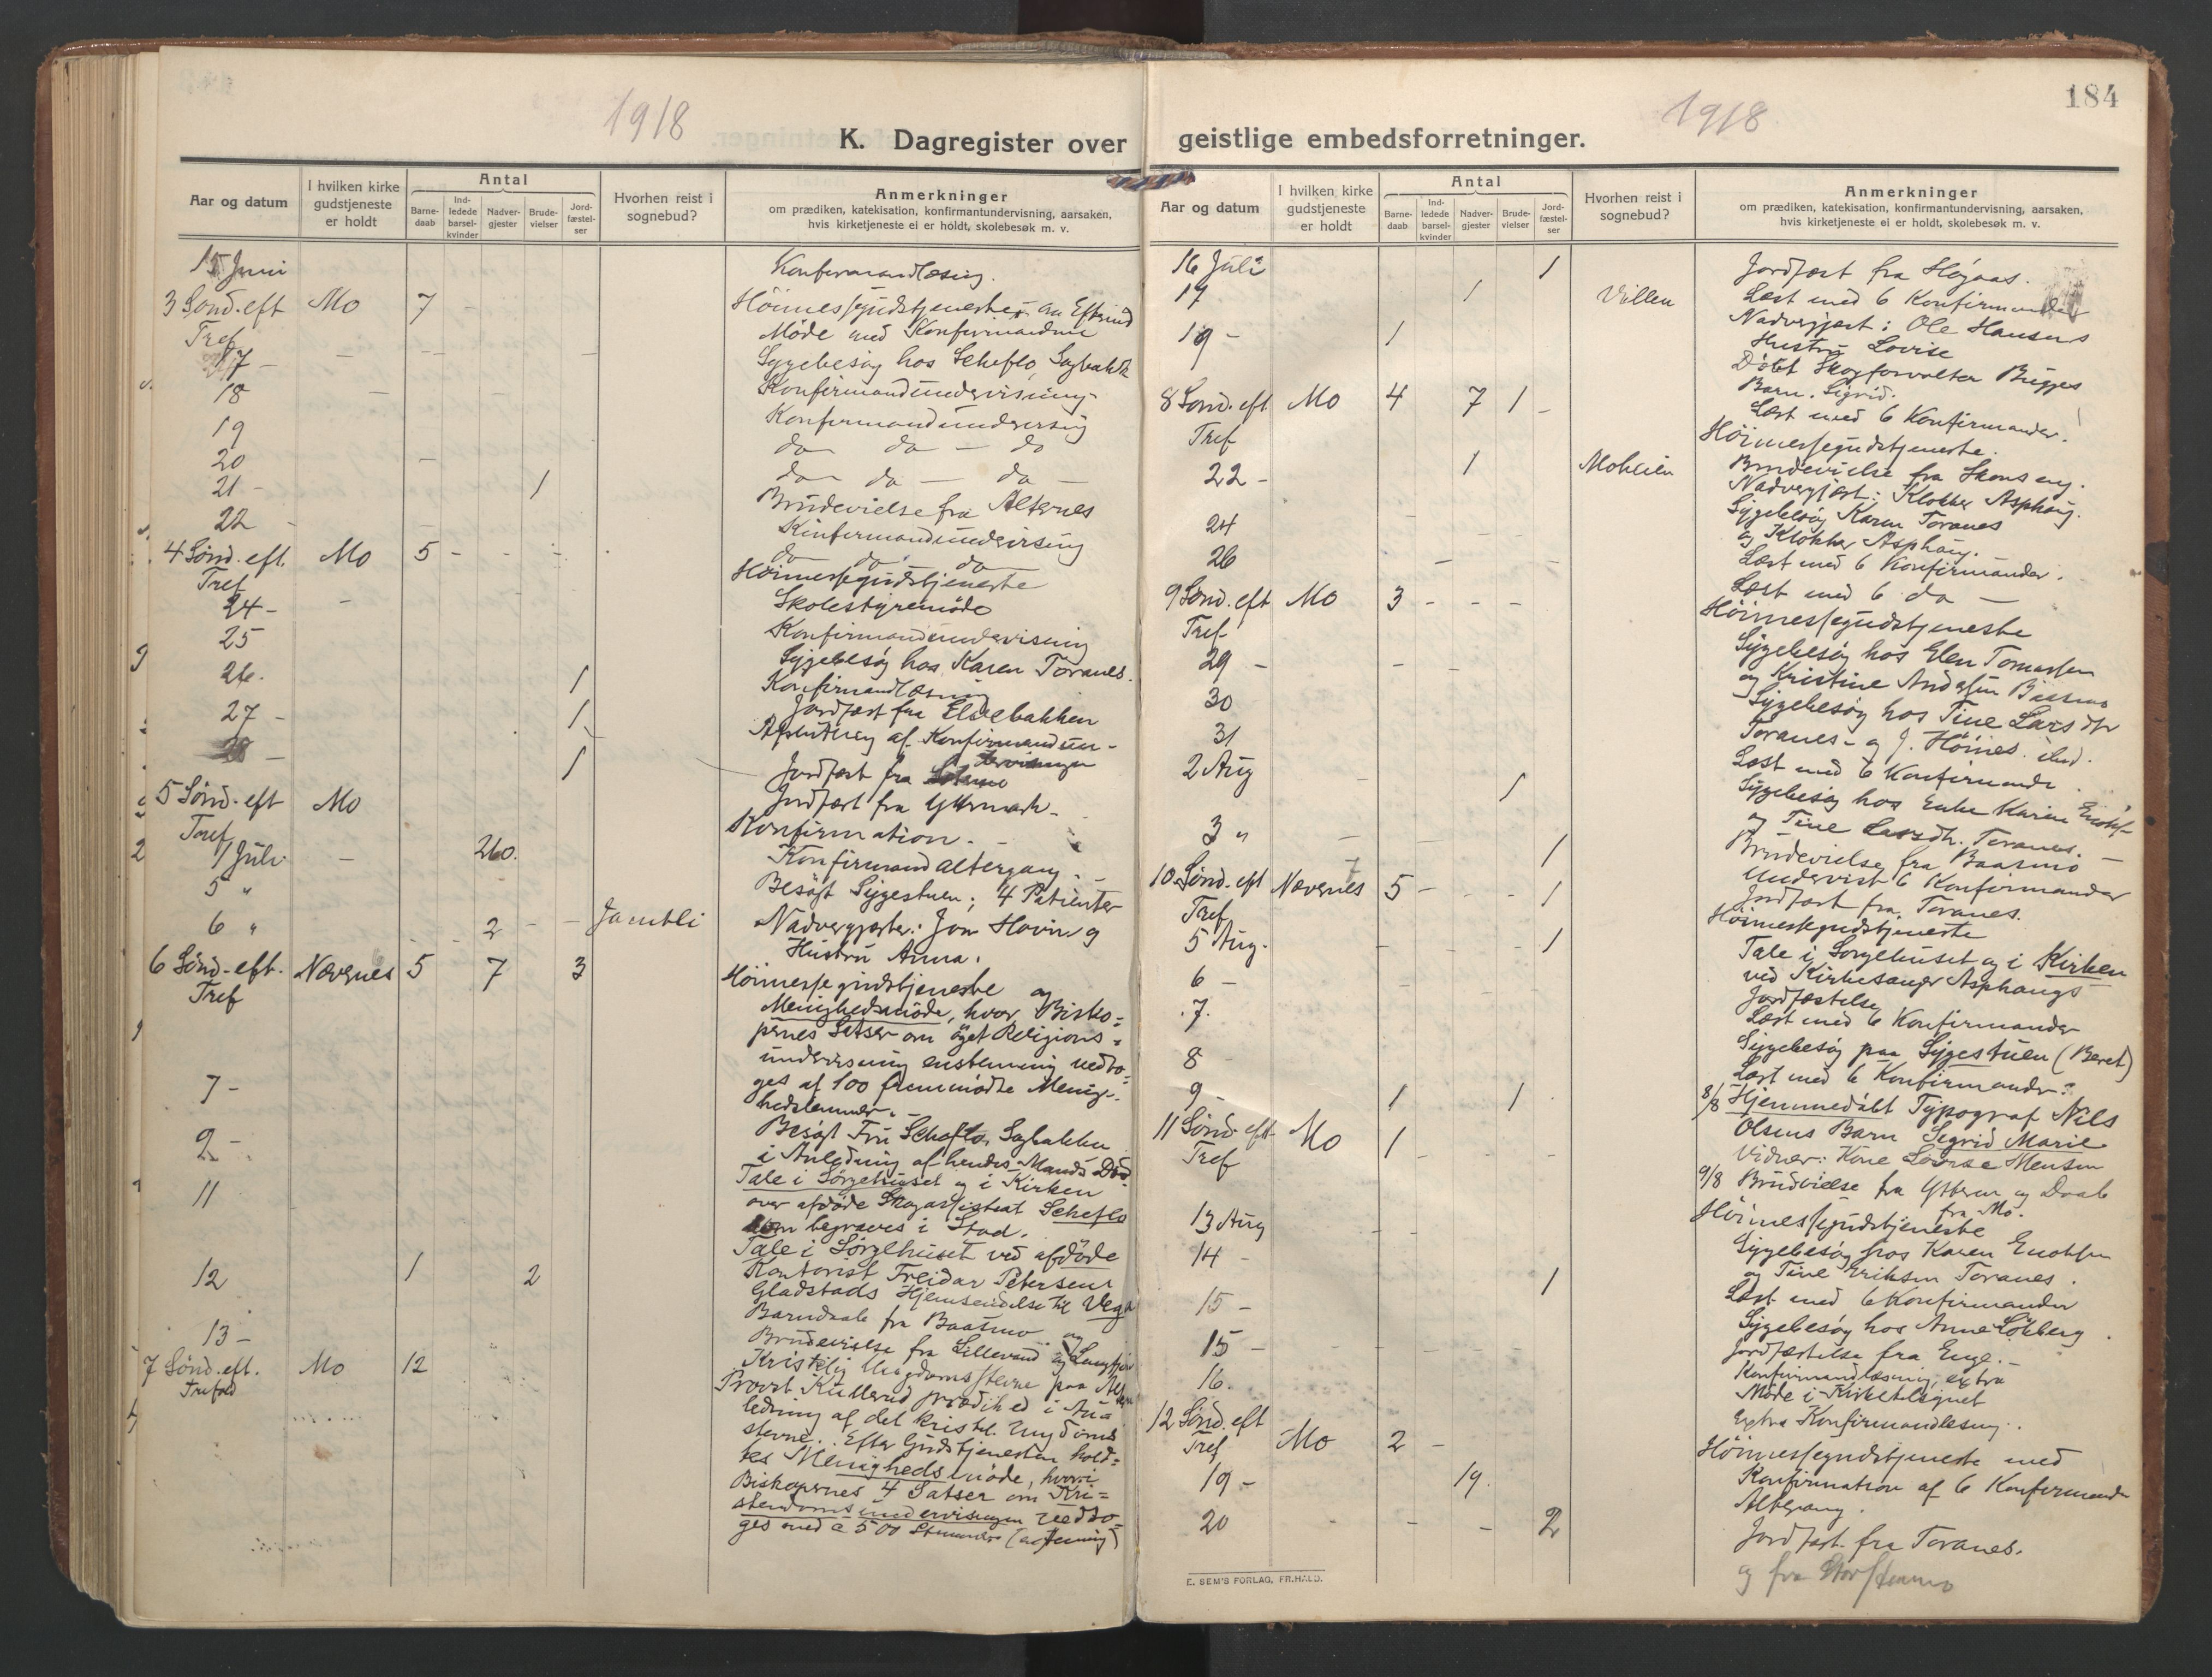 184
1918
1918
K. Dagregister over geistlige embedsforretninger.
Aar og datum
I hvilken kirke gudstjeneste er holdt
Antal
Barne-daab
Ind-ledede barsel-kvinder
Nadver-gjester
Brude-vielser
Jord-fæstel-ser
Hvorhen reist i sognebud?
Anmerkninger
om prædiken, katekisation, konfirmantundervisning, aarsaken,
hvis kirketjeneste ei er holdt, skolebesøk m. v.
15 Juni Konfirmandlæsing.
3 Sønd. eft Mo 7 - Høimessegudstjeneste
Tref Møde med Konfirmanderne
17 - Sygebesøg hos Scheflo, Sagbakken
18 Konfirmandundervisning
19 Konfirmandundervisning
20 do do - do
21 - 1 do do - do -
Brudevielse fra Alternes
22 - Konfirmandundervisning
do do do
4 Sønd. eft. Mo 5 - - - Høimessegudstjeneste
Tref
24 - Skolestyremøde
25 Konfirmandundervisning
Sygebesøg hos Karen Toranes.
26. 1 Konfirmandlæsning
Jordfæst fra
27 - 1 Afslutning af Konfirmandun-
dervisningen
1 Jordfæst fra
Jordfæst fra Yttermark.
5 Sønd. eft Mo Konfirmation.
Tref
1 Juli - 260. Konfirmandaltergang.
5 " Besøgt Sygestuen; 4 Patienter
6 " 2 - - Jamtli Nadvergjæster: Jon og
Hustru Anna.
6 Sønd. eft. Nævernes 5 7 3 Høimessegudstjeneste og
Tref Menighedsmøde, hvor Bisko=
pernes Satser om øget Religions=
undervisning enstemmig vedto=
ges af 100 fremmødte Menig-
hedslemmer. -
7 - Besøgt Fru Scheflo, Sagbakken
i Anledning af hendes Mands Død.
9 - Tale i Sørgehuset og i Kirken
over afdøde Skogassistent Scheflo
som begraves i Stod.
11 Tale i Sørgehuset ved afdøde
Kontorist Freidar Petersen
Gladstads Hjemsendelse til Vega
12 1 2 Barnedaab fra Baasmo
Brudevielse fra Lillevand og
13 - Kristelig Ungdomsstevne paa
7 Sønd. eft. Mo 12 Provst Kullerud prædiked i An=
Trefold ledning af det kristel. Ungdoms
stevne. Efter Gudstjenesten hold=
tes Menighedsmøde, hvori
Biskopernes 4 Satser om Kri=
stendomsundervisningen vedto-
ges med c 500 Stemmer
Aar og datum
I hvilken kirke gudstjeneste er holdt
Antal
Barne-daab
Ind-ledede barsel-kvinder
Nadver-gjester
Brude-vielser
Jord-fæstel-ser
Hvorhen reist i sognebud?
Anmerkninger
om prædiken, katekisation, konfirmantundervisning, aarsaken,
hvis kirketjeneste ei er holdt, skolebesøk m. v.
16 Juli 1 Jordfæst fra Høgaas.
17 1 Villen Læst med 6 Konfirmander
Nadvergjæst: Ole Hansens
Hustru Lovise
19 - 1 Døbt Skogforvalter Brigges
Barn, Sigrid.
Læst med 6 Konfirmander.
8 Sønd. eft Mo 4 7 1 - Høimessegudstjeneste.
Tref Brudevielse fra Skonseng.
22 - 1 Moheien Nadvergjæst: Klokker Asphaug.
Sygebesøg Karen Toranes
og Klokker Asphaug.
24 Læst med 6 Konfirmander.
26 Læst med 6 do -
9 Sønd. eft Mo 3 - - - Høimessegudstjeneste
Tref
29 - Sygebesøg hos Elen Tomassen
og Kristine Andersen Baasmo
30 Sygebesøg hos Tine Larsdtr
Toranes - og J. Høines
31 Læst med 6 Konfirmander.
2 Aug 1 Sygebesøg hos Enke Karen
og Tine Larsdtr. Toranes. -
Brudevielse fra Baasmo
3 " 1 Undervist 6 Konfirmander
Jordfæst fra Toranes.
10. Sønd. eft Nævernes 5 - - - 1 Høimessegudstjeneste
Tref
5 Aug. 1 Tale i Sørgehuset og i Kirken
ved Kirkesanger Asphaugs
Jordfæstelse
6 - Læst med 6 Konfirmander
7. Sygebesøg paa Sygestuen (Beret)
8 - Læst med 6 Konfirmander
9 - 1 1 8/8 Hjemmedøbt Typograf Nils
Olsens Barn Sigrid Marie
Vidner: Kone Lovise Mensen
9/8 Brudvielse fra Ytteren og Daab
fra Mo.
11 Sønd. eft Mo 1 Høimessegudstjeneste
Tref
13 Aug Sygebesøg hos Karen Enoksen
og Tine Eriksen Toranes.
14 - Læst med 6 Konfirmander
Sygebesøg hos Anne Løkberg.
15 - 1 Jordfæstelse fra Enge. -
15 - Konfirmandlæsning, extra
Møde i Kirketilsynet
16. Extra Konfirmandlæsning.
12 Sønd. eft Mo 2 - Høimessegudstjeneste med
Tref Konfirmation af 6 Konfirmander
19 - 19. Altergang.
20 - - - 2 Jordfæst. fra Toranes.
og fra
E. SEM'S FORLAG, FR.HALD.